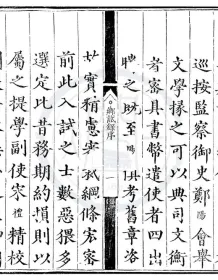 巡按監察御史鄭陽會舉
文學掾之可以典司文衡
者審具書幣遣使者四出
聘之既至
俱考舊章洛
鄉試錄序
實稍慮
綱條宏密
前此入試之士數患猥多
選定比昔務期約損則以
屬之提學副使宋禮精校